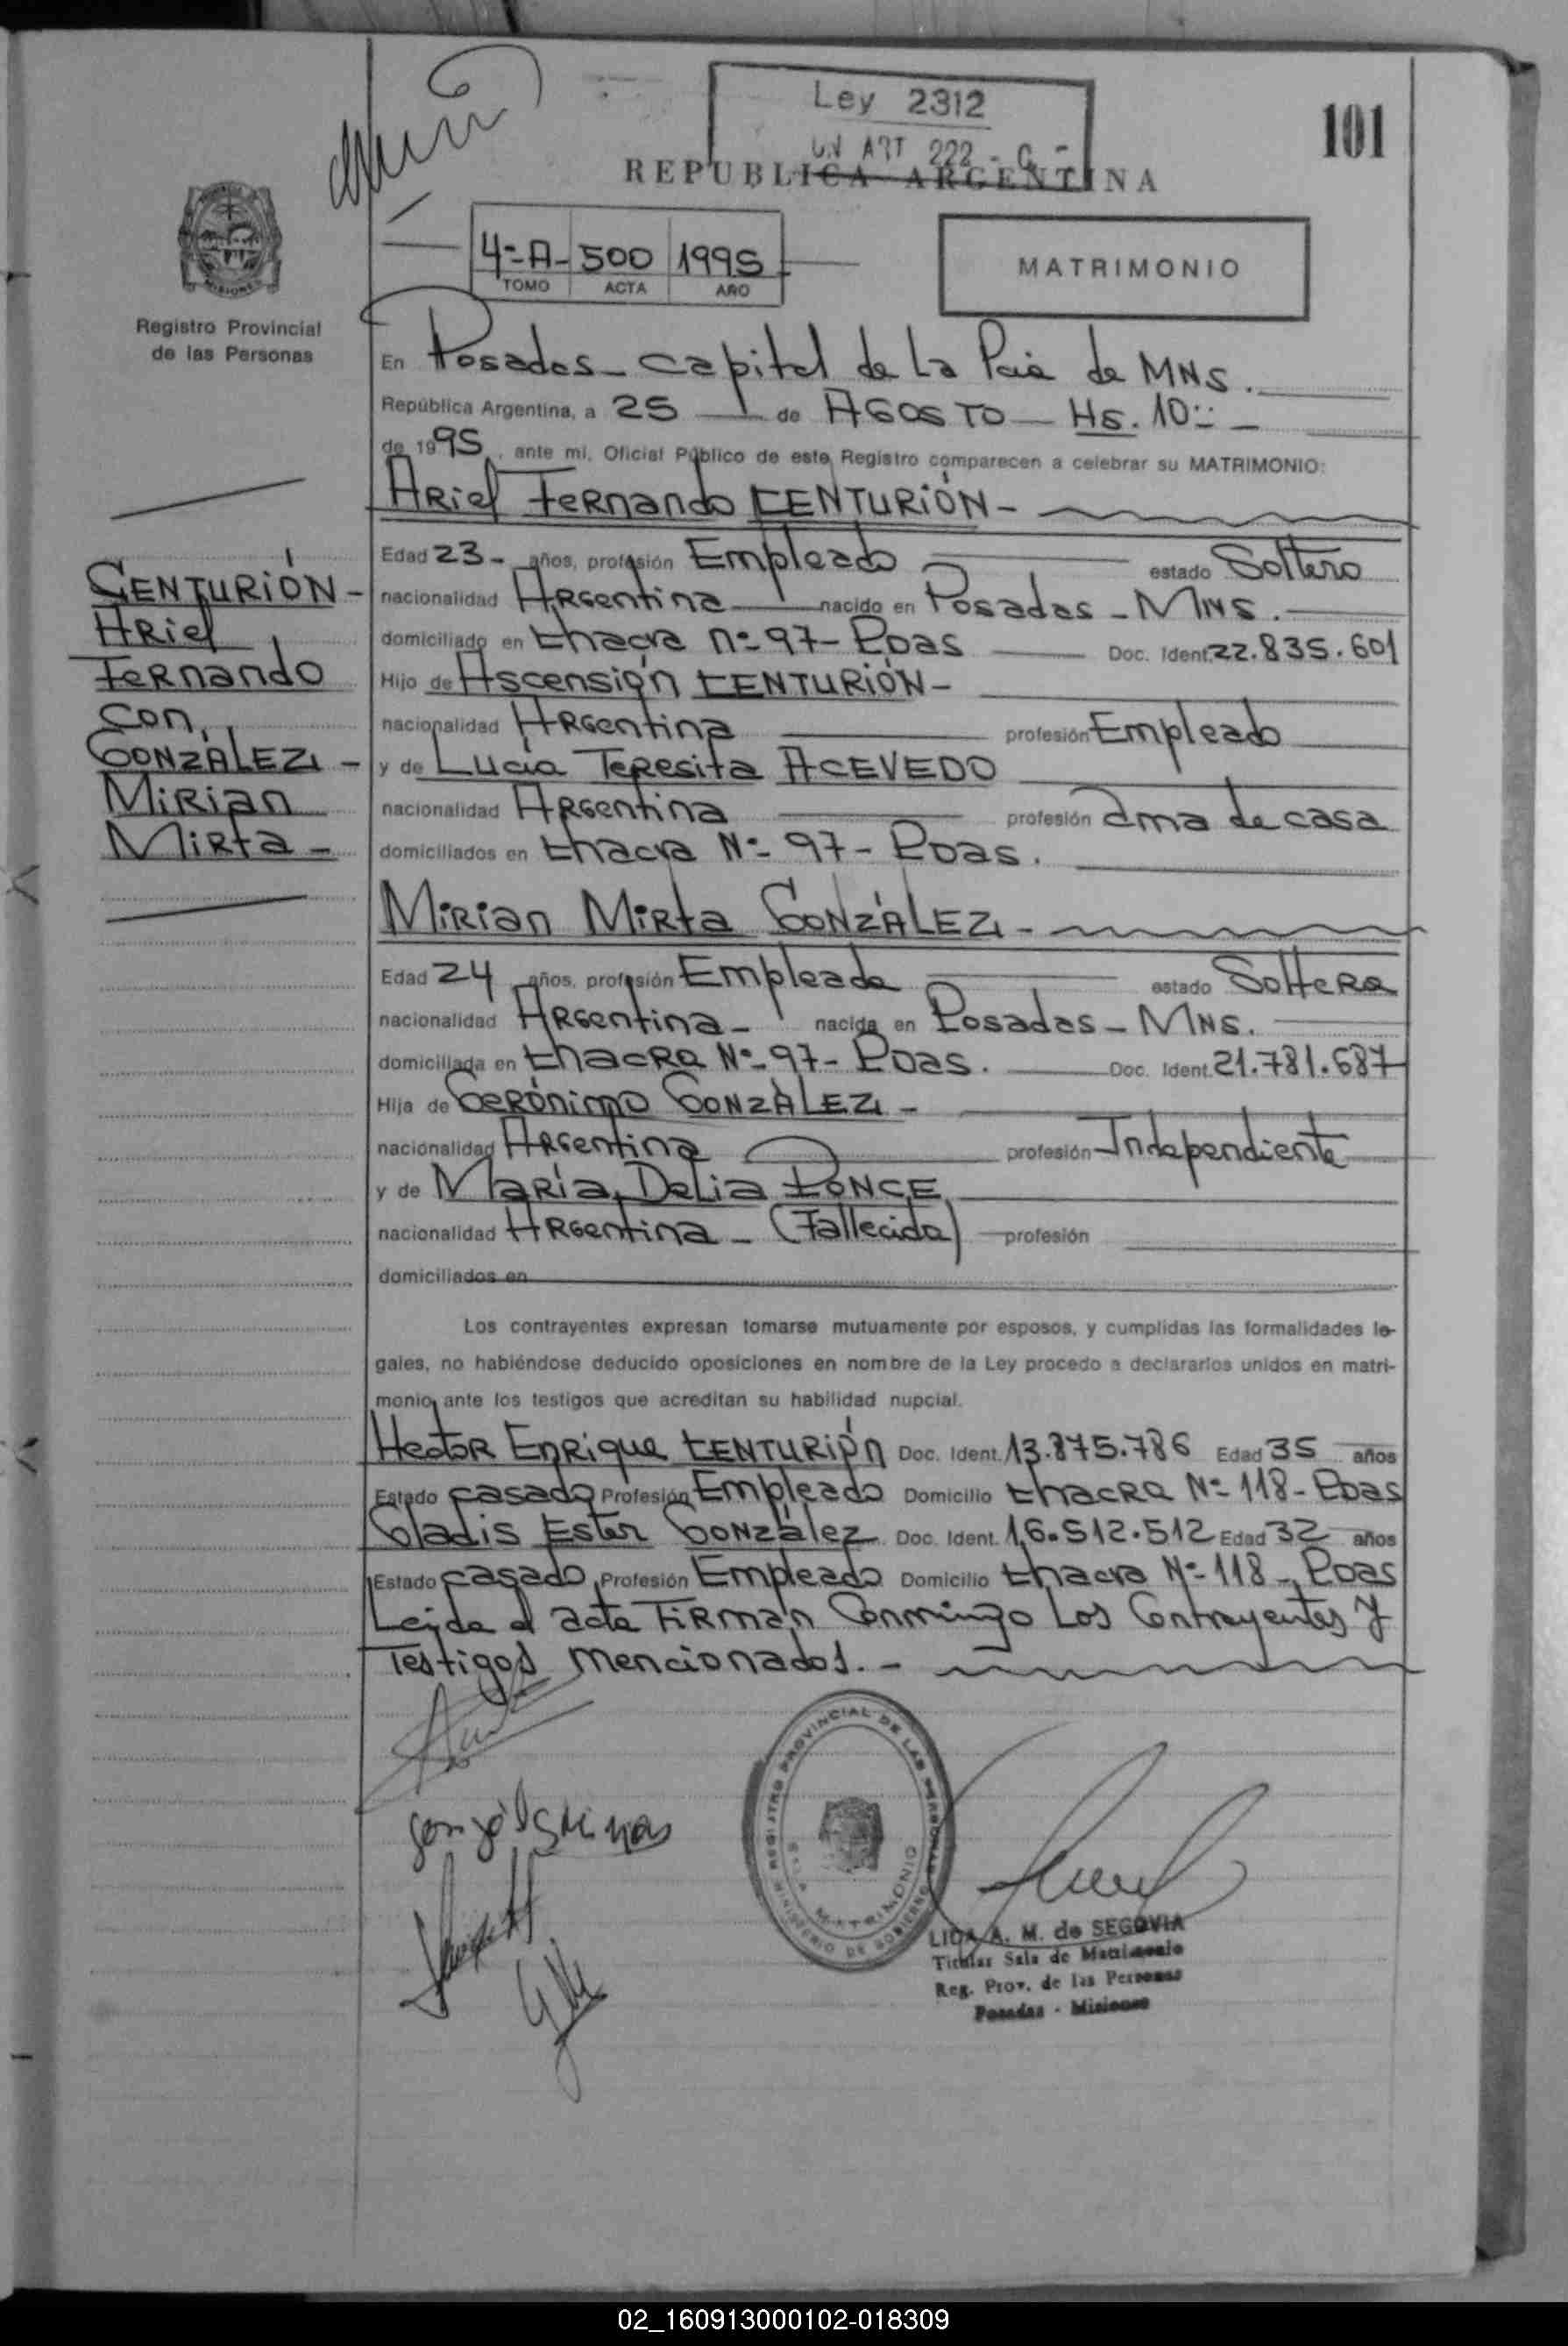 Ley 2312
UN ART 222 - C -
101
REPUBLICA ARGENTINA
4º-A- 500 1995
TOMO ACTA AÑO
MATRIMONIO
MISIONES
Registro Provincial
de las Personas
CENTURIÓN -
Ariel
Fernando
con
GONZÁLEZ -
Mirian
Mirta -
En Posadas - Capital de La Pcia de MNS.
República Argentina, a 25 de AGOSTO Hs. 10:-
de 1995, ante mi, Oficial Público de este Registro comparecen a celebrar su MATRIMONIO:
Ariel Fernando CENTURIÓN -
Edad 23- años, profesión Empleado estado Soltero
nacionalidad Argentina nacido en Posadas - MNS.
domiciliado en Chacra Nº 97 - Pdas Doc. Ident. 22.835.601
Hijo de Ascensión CENTURIÓN -
nacionalidad Argentina profesión Empleado
y de Lucía Teresita ACEVEDO
nacionalidad Argentina profesión ama de casa
domiciliados en Chacra Nº 97 - Pdas.
Mirian Mirta GONZÁLEZ -
Edad 24 años, profesión Empleada estado Soltera
nacionalidad Argentina - nacida en Posadas - MNS.
domiciliada en Chacra Nº 97 - Pdas. Doc. Ident. 21.781.687
Hija de Gerónimo GONZÁLEZ -
nacionalidad Argentina profesión Independiente
y de María Delia PONCE
nacionalidad Argentina - (Fallecida) profesión
domiciliados en
Los contrayentes expresan tomarse mutuamente por esposos, y cumplidas las formalidades le-
gales, no habiéndose deducido oposiciones en nombre de la Ley procedo a declararlos unidos en matri-
monio ante los testigos que acreditan su habilidad nupcial.
Hector Enrique CENTURIÓN Doc. Ident. 13.875.786 Edad 35 años
Estado casado Profesión Empleado Domicilio Chacra Nº 118 - Pdas
Gladis Ester González Doc. Ident. 16.512.512 Edad 32 años
Estado casado Profesión Empleado Domicilio Chacra Nº 118 - Pdas
Leída el acta Firman Conmingo Los Contrayentes Y
Testigos mencionados. -
REGISTRO PROVINCIAL DE LAS PERSONAS
SALA MATRIMONIO
MINISTERIO DE GOBIERNO
LIDA A. M. de SEGOVIA
Titular Sala de Matrimonio
Reg. Prov. de las Personas
Posadas - Misiones
02_160913000102-018309